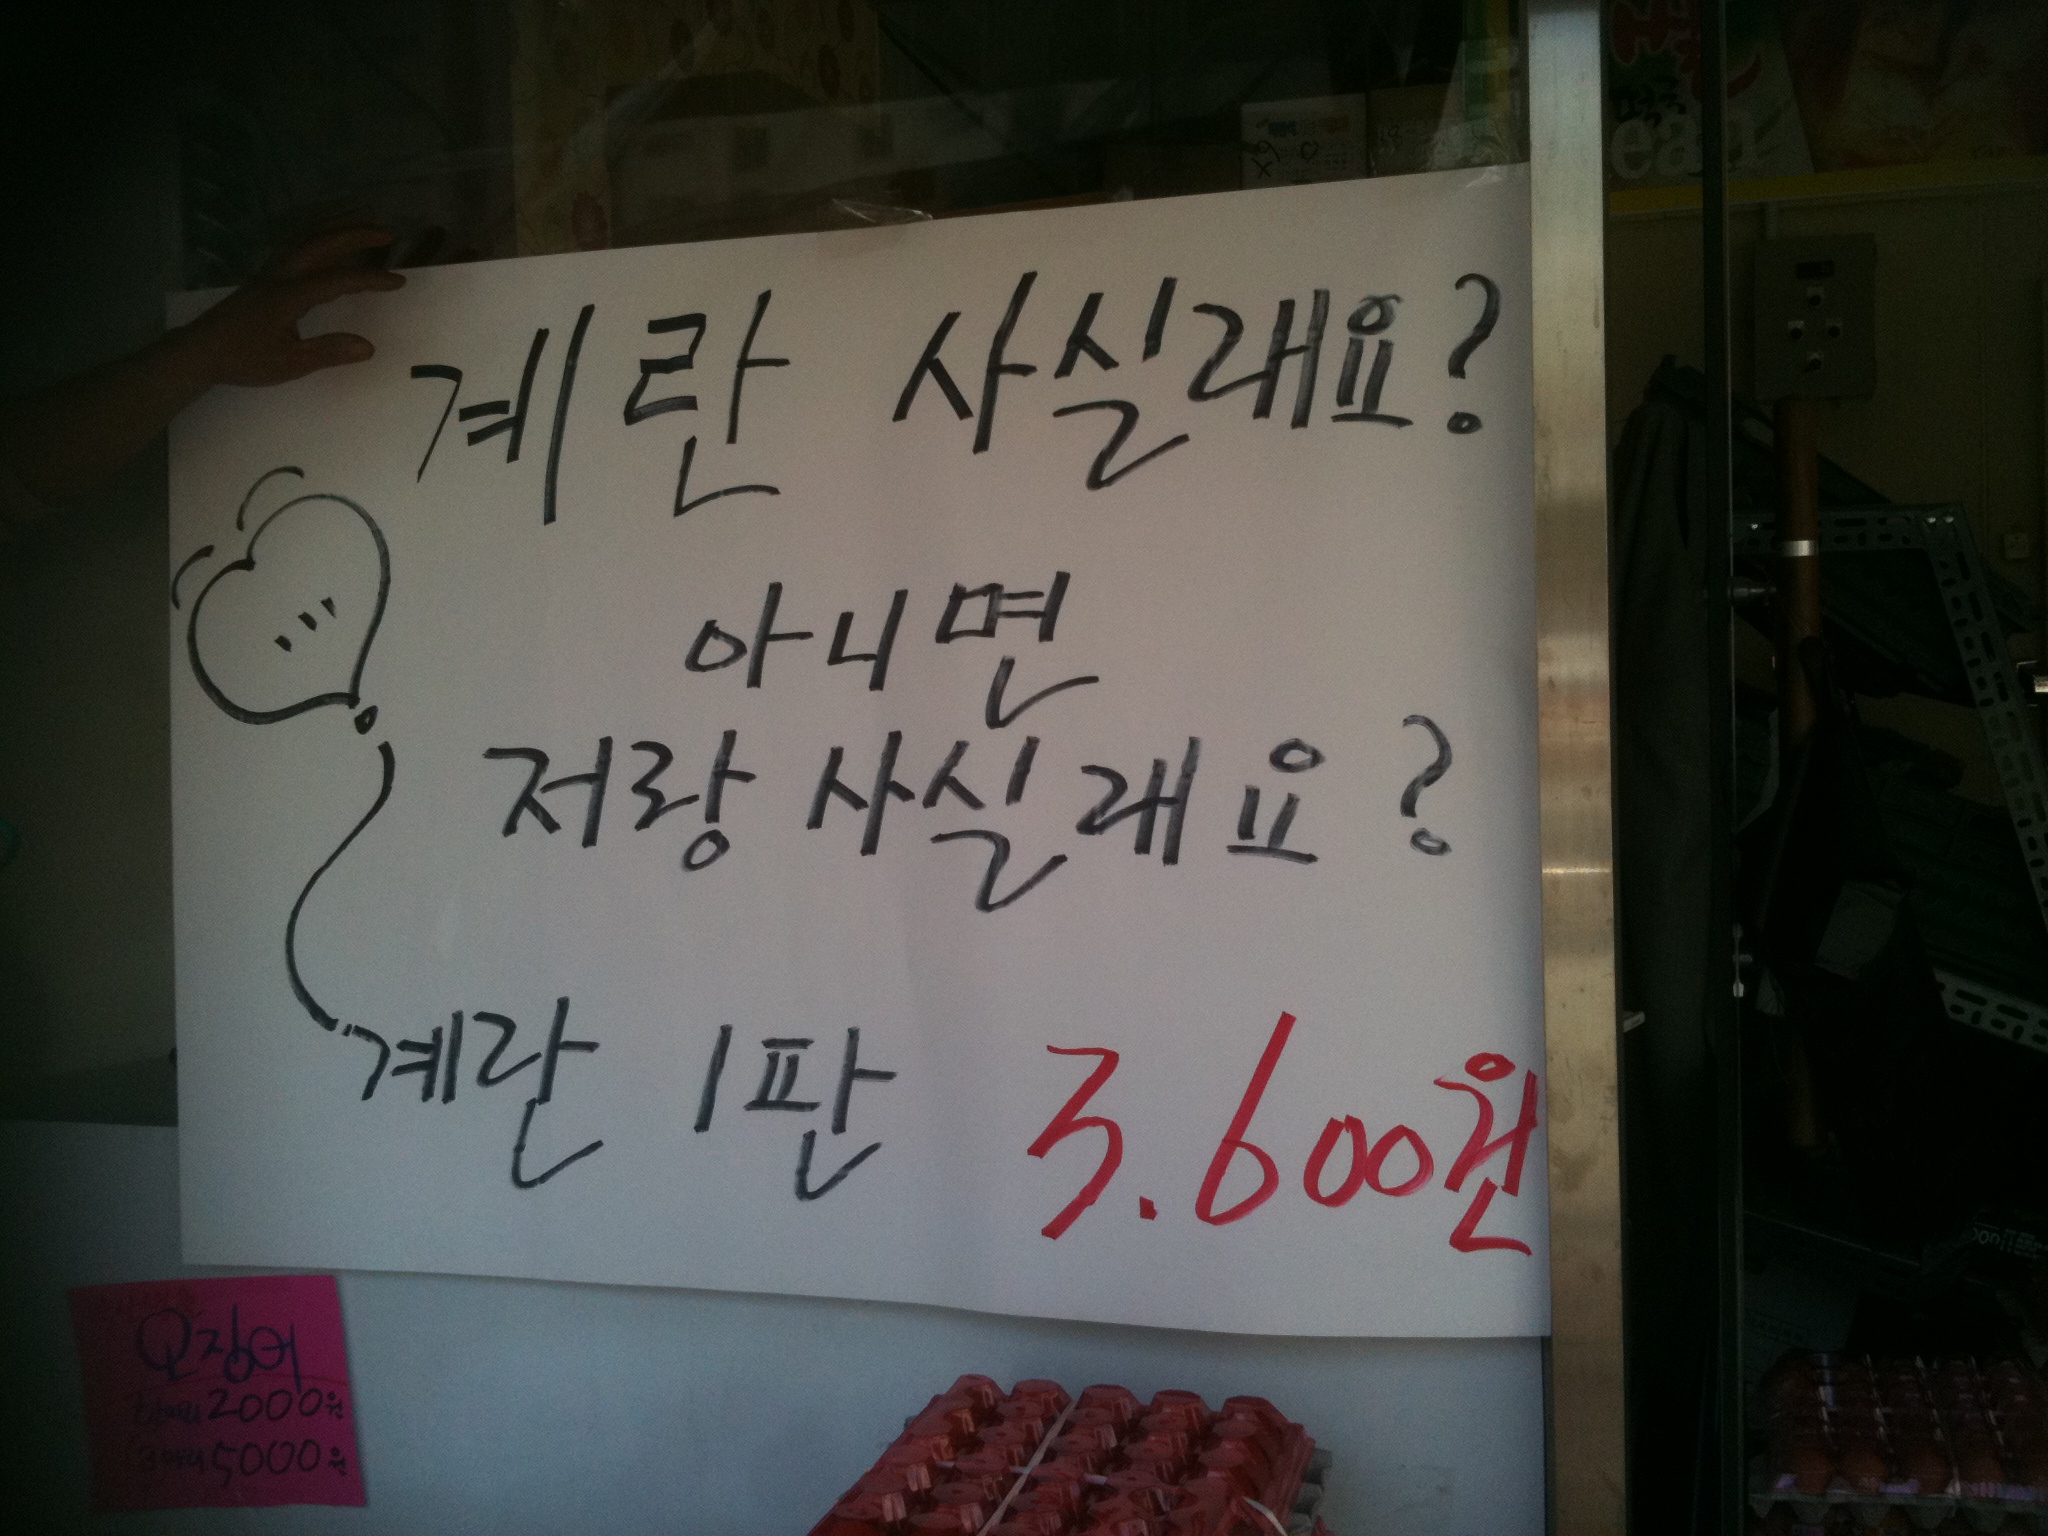 계란 사실래요?
아니면
저랑 사실래요?
계란 1판 3.600원
오징어
2000원
3마리 5000원
떡국